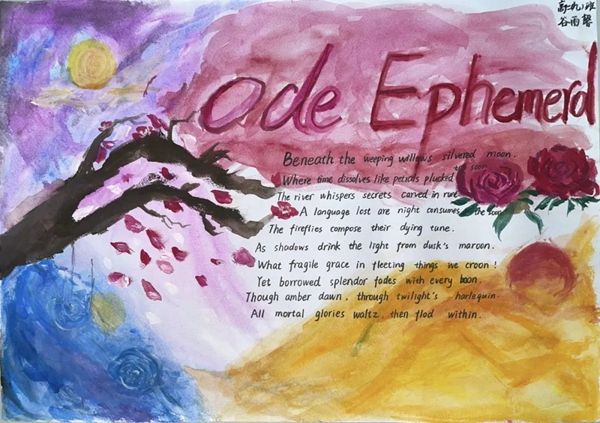 高二九班
谷雨馨
Ode Ephemeral
Beneath the weeping willows silvered moon.
Where time dissolves like petals plucked soon
The river whispers secrets carved in rune
A language lost are night consumes the
The fireflies compose their dying tune.
As shadows drink the light from dusk's maroon.
What fragile grace in fleeting things we croon!
Yet borrowed splendor fades with every boon.
Though amber dawn, through twilight's harlequin.
All mortal glories waltz, then flod within.